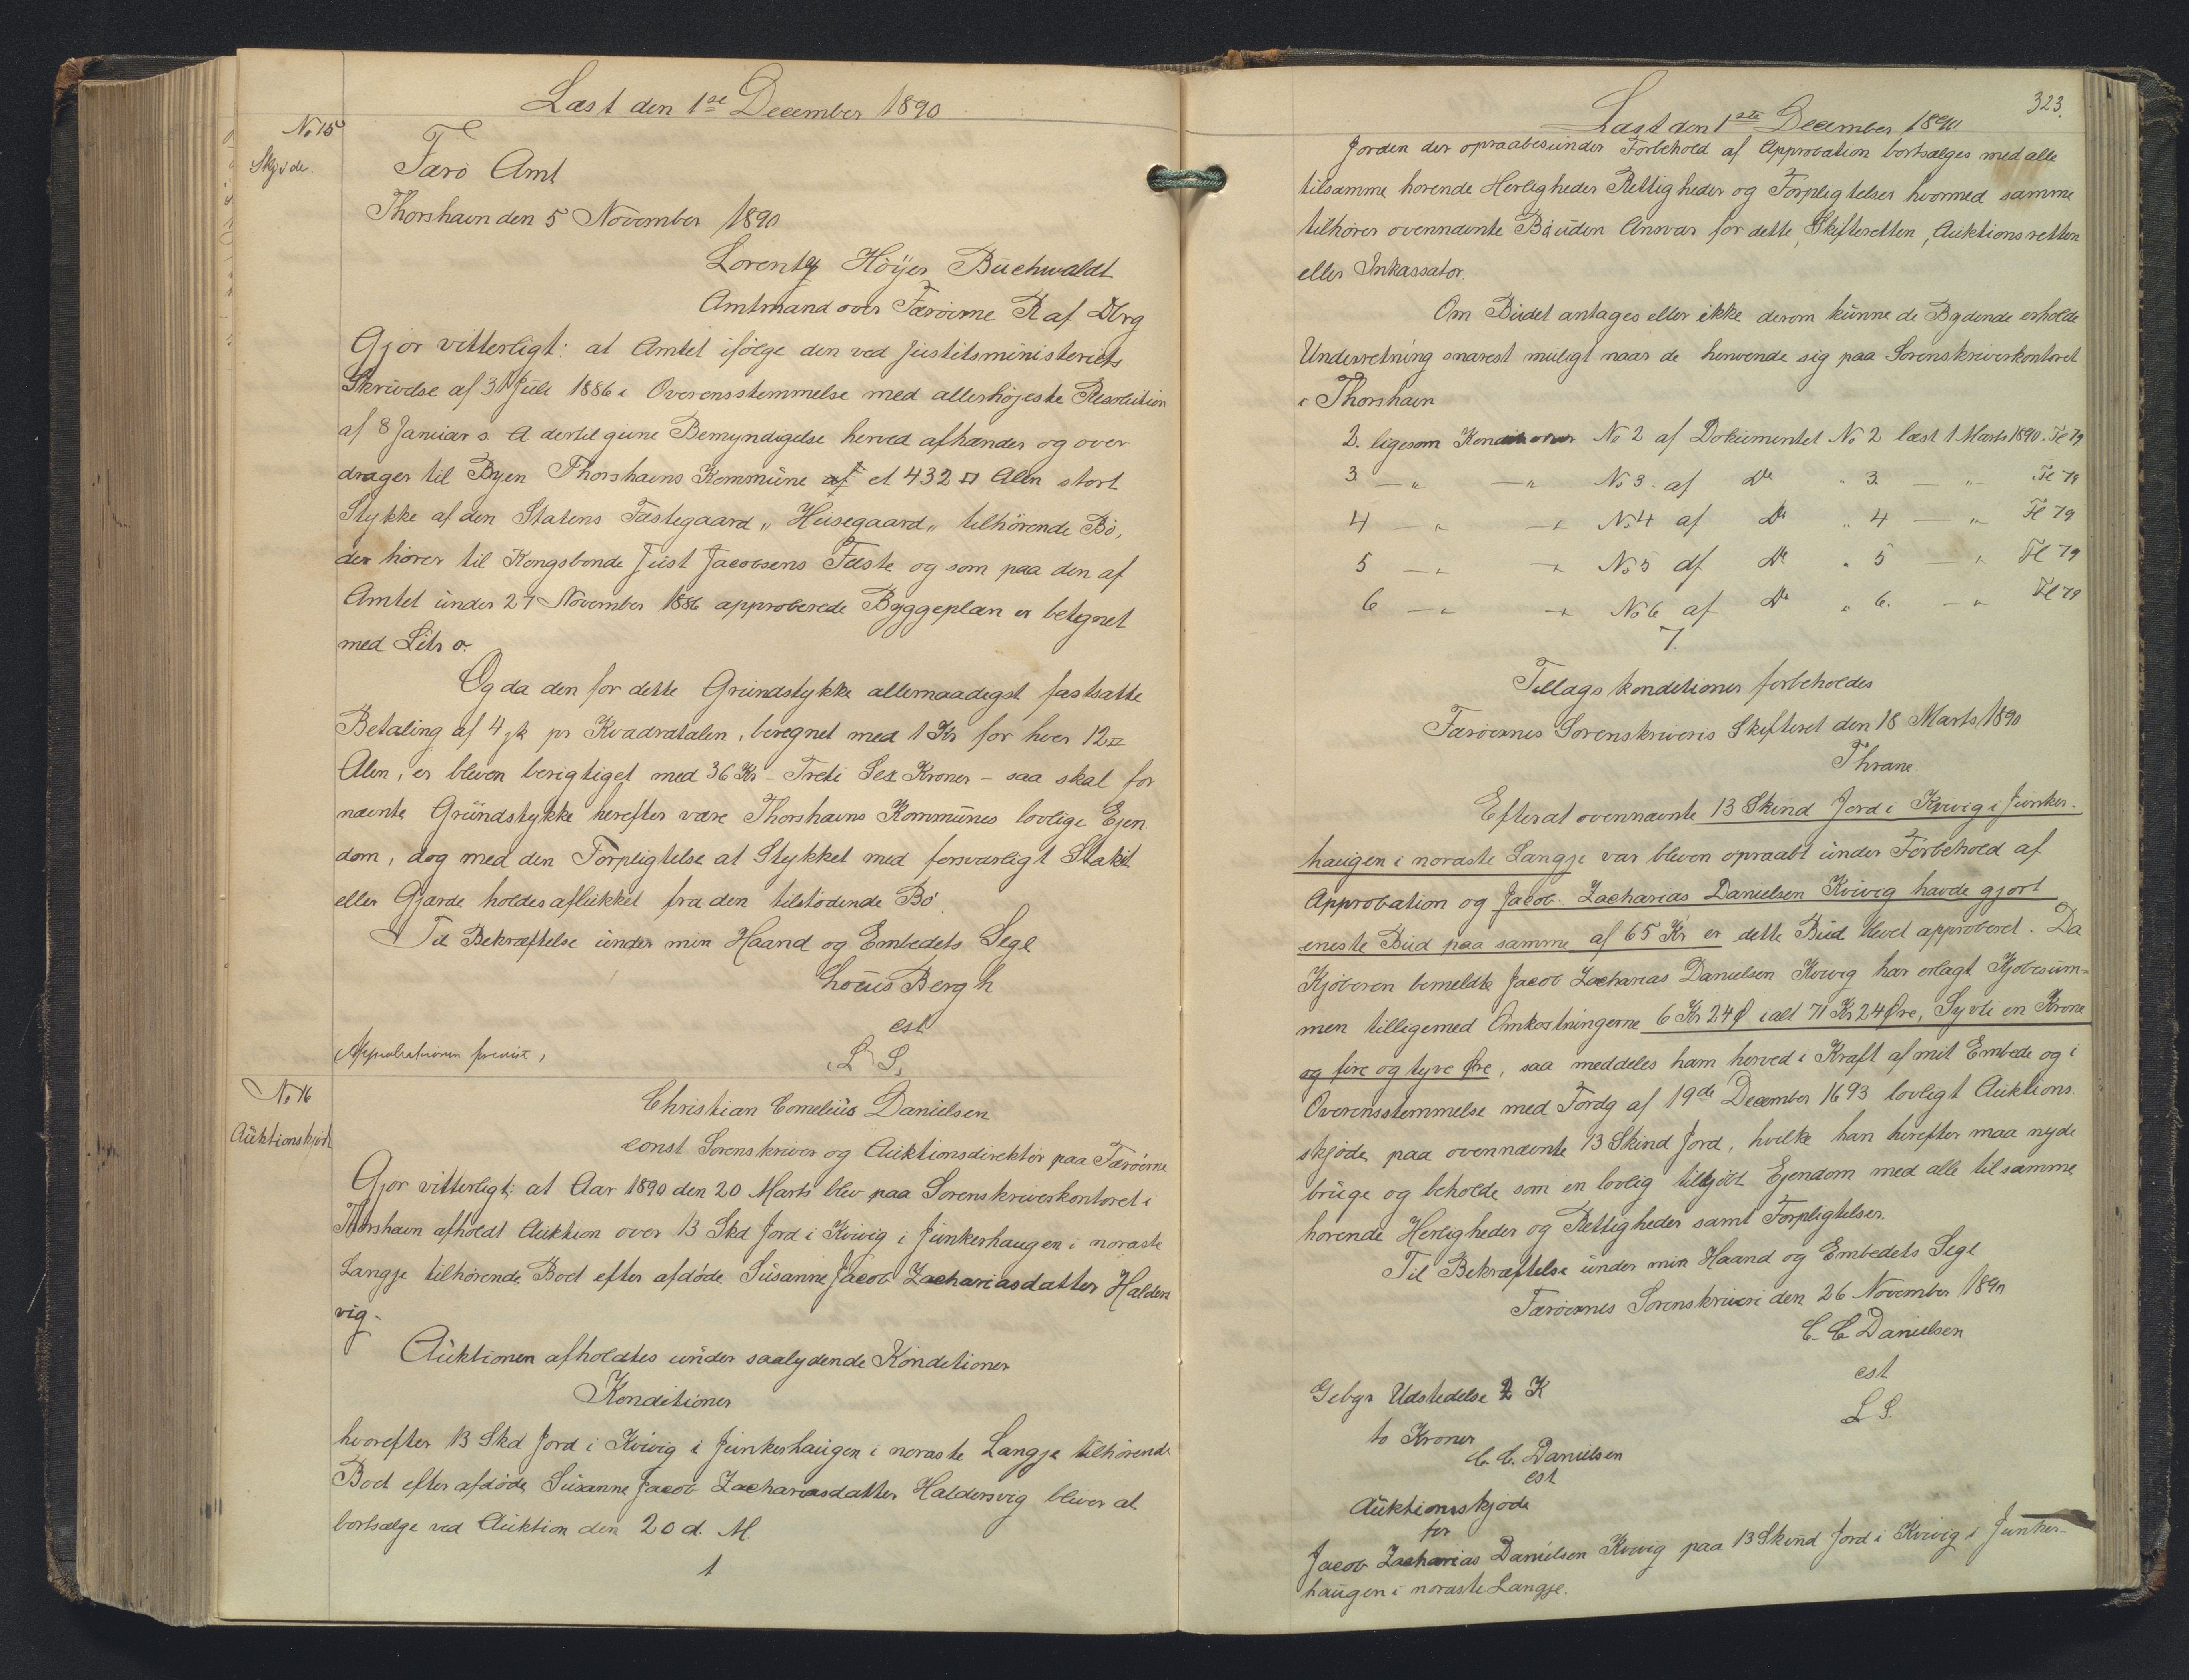 Læst den 1ste December 1890
No 15
Skjøde.
Færø Amt
Thorshavn den 5 November 1890
Lorentz Höyer Buchwaldt
Amtmand over Færøerne R af Dbrg
Gjør vitterligt: at Amtet ifølge den ved Justitsministeriets
Skrivelse af 31 Juli 1886 i Overensstemmelse med allerhøjeste Resolution
af 8 Januar s. A. dertil givne Bemyndigelse herved afhænder og over
drager til Byen Thorshavns Kommune af et 432 □ Alen stort
Stykke af den Statens Fæstegaard „Husegaard„ tilhörende Bø,
der hører til Kongsbonde Just Jacobsens Fæste og som paa den af
Amtet under 27 November 1886 approberede Byggeplan er betegnet
med Litr o.
Og da den for dette Grundstykke allernaadigst fastsatte
Betaling af 4 sk pr Kvadratalen, beregnet med 1 Kr for hver 12 □
Alen, er bleven berigtiget med 36 Kr - Treti Sex Kroner - saa skal for
nævnte Grundstykke herefter være Thorshavns Kommunes lovlige Ejen
dom, dog med den Forpligtelse at Stykket med forsvarligt Stakit
eller Gjærde holdes aflukket fra den tilstödende Bø.
Til Bekræftelse under min Haand og Embedets Segl
Louis Bergh
cst
L S.
Approbationen forevist,
No 16
Auktionskjøde
Christian Cornelius Danielsen
const Sorenskriver og Auktionsdirektør paa Færøerne
Gjør vitterligt: at Aar 1890 den 20 Marts blev paa Sorenskriverkontoret i
Thorshavn afholdt Auktion over 13 Skd Jord i Kvivig i Junkerhaugen i noraste
Langje tilhørende Boet efter afdøde Susanne Jacob Zachariasdatter Halders
vig.
Auktionen afholdtes under saalydende Konditioner
Konditioner
hvorefter 13 Skd Jord i Kvivig i Junkerhaugen i noraste Langje tilhørende
Boet efter afdøde Susanne Jacob Zachariasdatter Haldersvig bliver at
bortsælge ved Auktion den 20 d. M.
1
323.
Læst den 1ste December 1890
Jorden der opraabes under Forbehold af Approbation bortsælges med alle
tilsamme hørende Herligheder Rettigheder og Forpligtelser hvormed samme
tilhører ovennævnte Bo uden Ansvar for dette, Skifteretten, Auktionsretten
eller Inkassator.
Om Budet antages eller ikke derom kunne de Bydende erholde
Underretning snarest muligt naar de henvende sig paa Sorenskriverkontoret
i Thorshavn
2. ligesom Konditioner No 2 af Dokumentet No 2 læst 1 Marts 1890. Fl 79
3 — „ — „ No 3. af Do „ 3 — „ Fl 79
4 — „ — „ No 4 af Do „ 4 — „ Fl 79
5 — „ — „ No 5 af Do „ 5 — „ Fl 79
6 — „ — „ No 6 af Do „ 6. — „ Fl 79
7.
Tillægs konditioner forbeholdes
Færøernes Sorenskriveris Skifteret den 18 Marts 1890
Thrane.
Efterat ovennævnte 13 Skind Jord i Kvivig i Junker-
haugen i noraste Langje var bleven opraabt under Forbehold af
Approbation og Jacob Zacharias Danielsen Kvivig havde gjort
eneste Bud paa samme af 65 Kr er dette Bud blevet approberet. Da
Kjøberen bemeldte Jacob Zacharias Danielsen Kvivig har erlagt Kjøbesum-
men tilligemed Omkostningerne 6 Kr 24 Ø ialt 71 Kr 24 Øre, Syvti en Krone
og fire og tyve Øre, saa meddeles ham herved i Kraft af mit Embede og i
Overensstemmelse med Fordg af 19de December 1693 lovligt Auktions
skjøde paa ovennævnte 13 Skind Jord, hvilke han herefter maa nyde
bruge og beholde som en lovlig tilkjøbt Ejendom med alle til samme
hørende Herligheder og Rettigheder samt Forpligtelser.
Til Bekræftelse under min Haand og Embedets Segl
Færøernes Sorenskriveri den 26 November 1890
C. C Danielsen
cst
L S.
Gebyr Udstedelse 2 K
to Kroner
C. C. Danielsen
cst
Auktionsskjøde
for
Jacob Zacharias Danielsen Kvivig paa 13 Skind Jord i Kvivig i Junker-
haugen i noraste Langje.